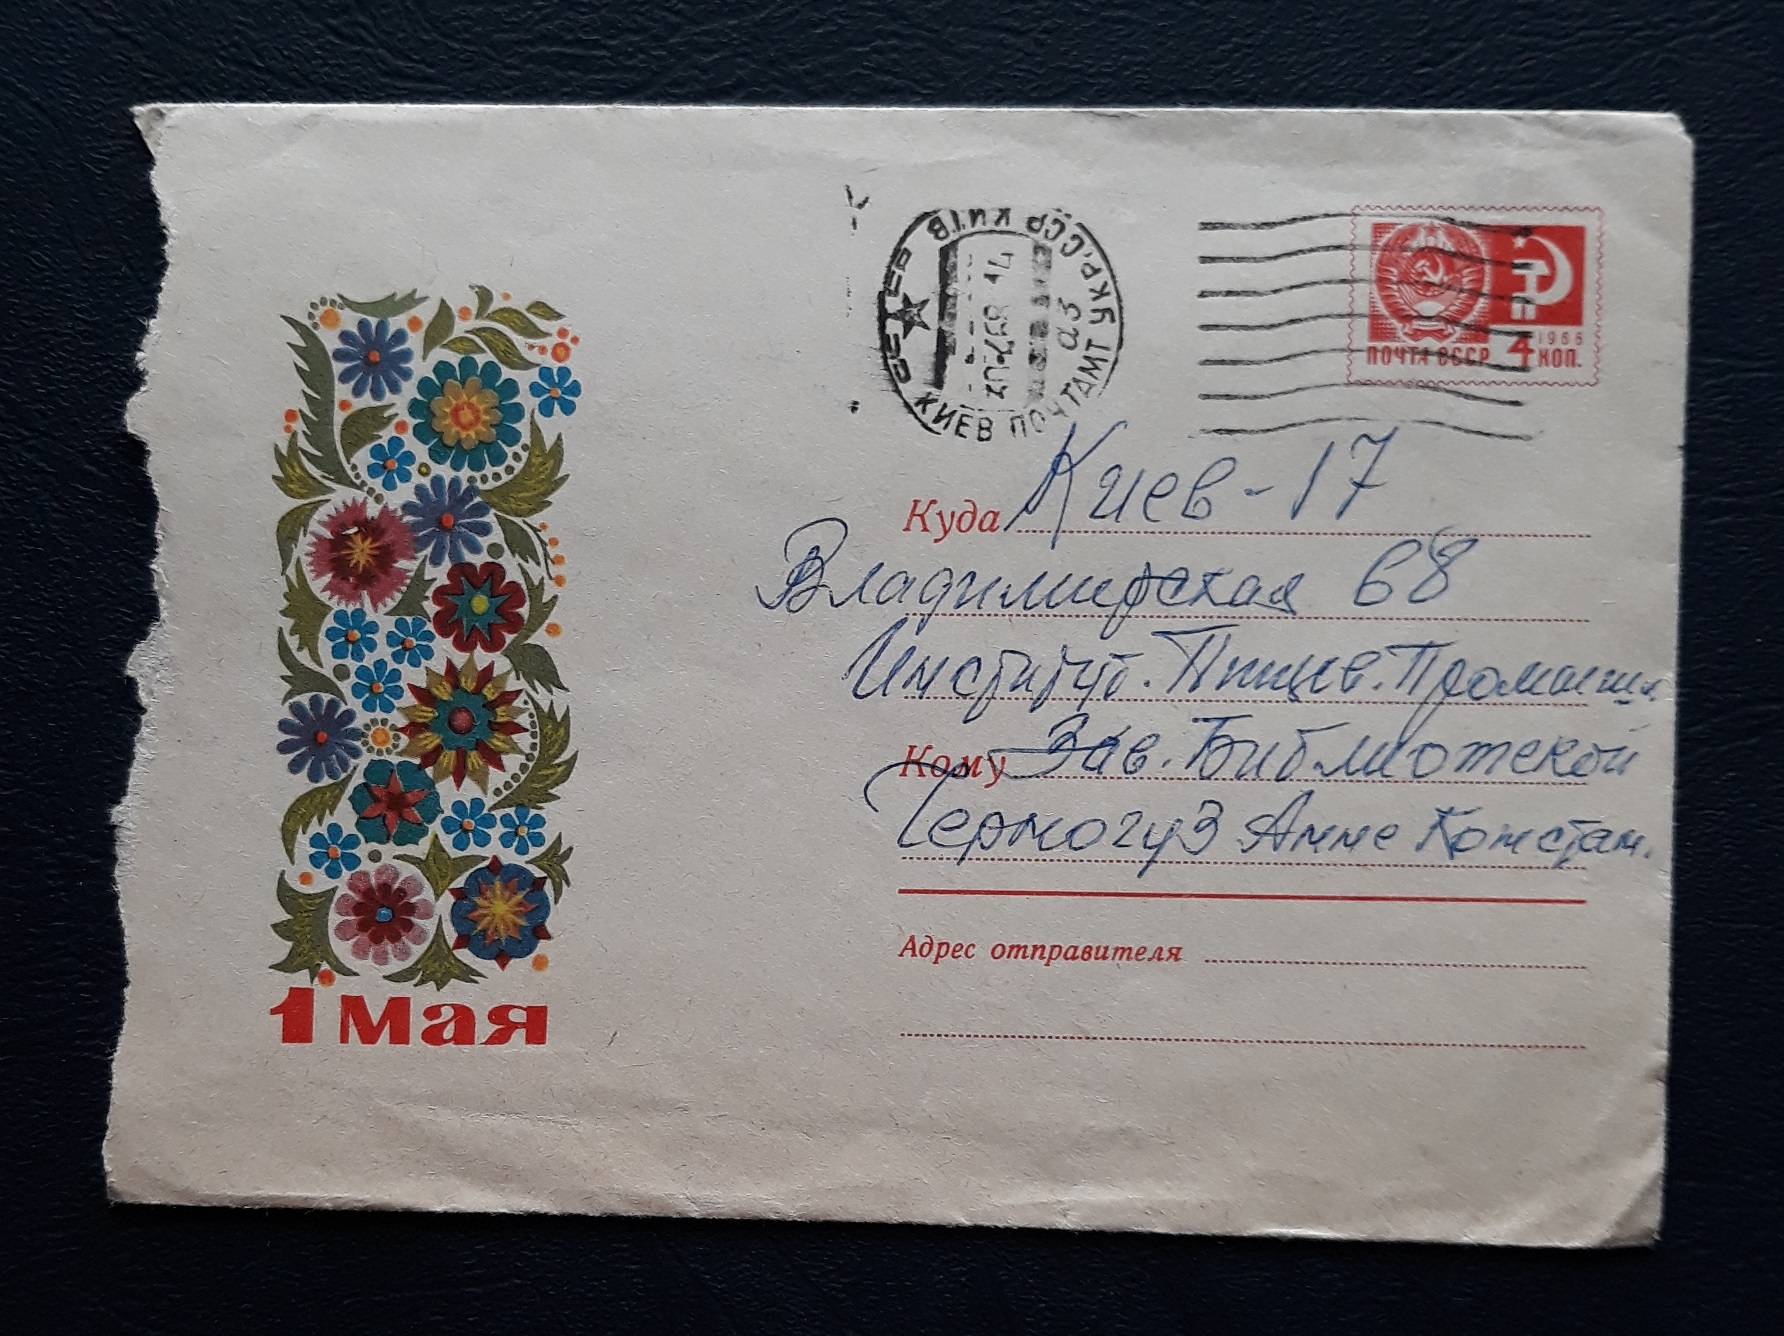 УКР.ССР КИЇВ
КИЕВ ПОЧТАМТ
аз
1966
ПОЧТА СССР 4 КОП.
Куда Киев-17
Владимирская 68
Институт. Пищев. Промышл.
Кому Зав. Библиотекой
Черногуз Анне Констан.
Адрес отправителя
1 Мая